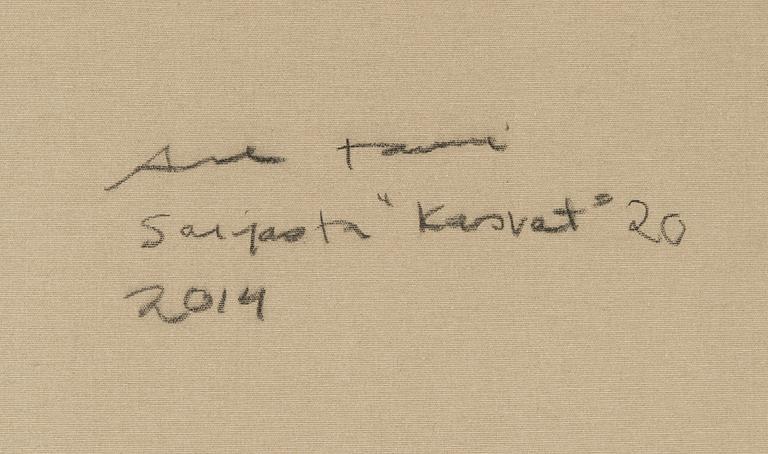 Sarjasta "Kasvat" 20
2014